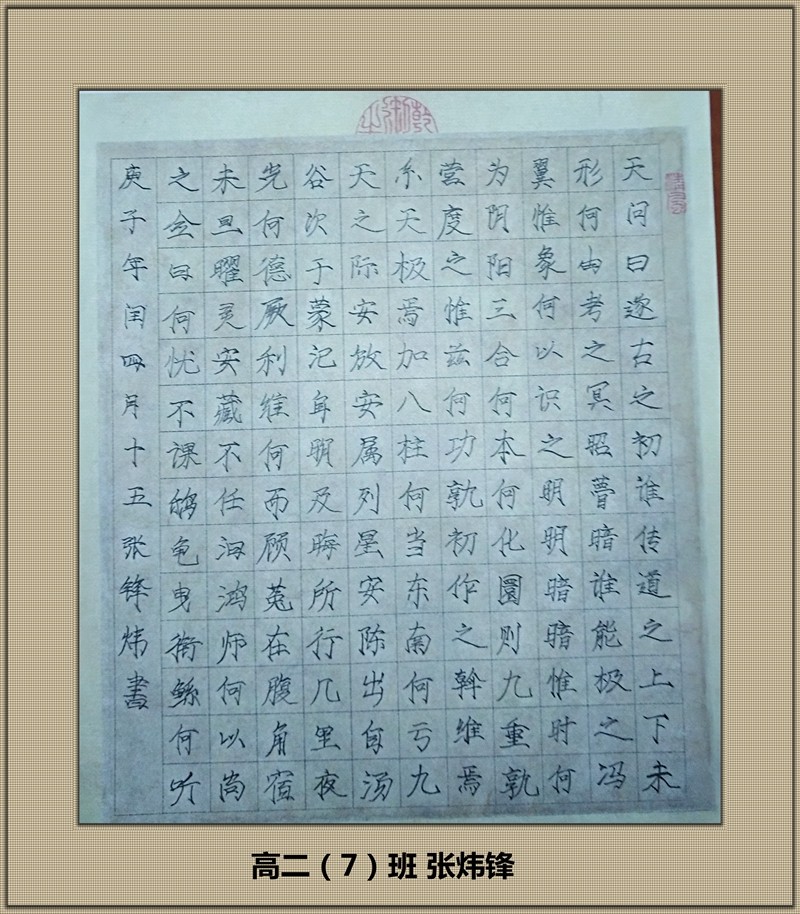 天问曰遂古之初谁传道之上下未
形何由考之冥昭瞢暗谁能极之冯
翼惟象何以识之明明暗暗惟时何
为阴阳三合何本何化圜则九重孰
营度之惟兹何功孰初作之斡维焉
系天极焉加八柱何当东南何亏九
天之际安放安属列星安陈出自汤
谷次于蒙汜自明及晦所行几里夜
光何德厥利维何而顾菟在腹角宿
未旦曜灵安藏不任汩鸿师何以尚
之佥曰何忧不课鸱龟曳衔鲧何听
庚子年闰四月十五张锋炜書
高二（7）班 张炜锋